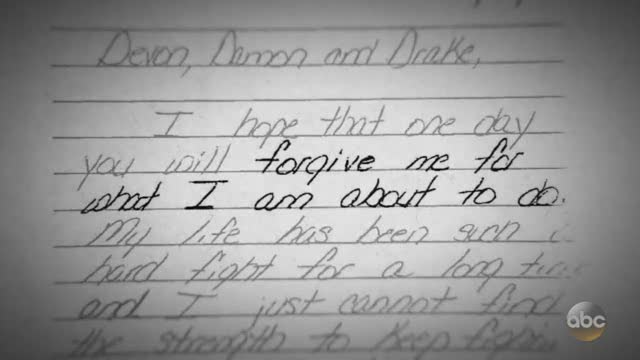 Devon, Damon and Drake,
I hope that one day
you will forgive me for
what I am about to do.
My life has been such a
hard fight for a long time
and I just cannot find
the strength to keep
abc